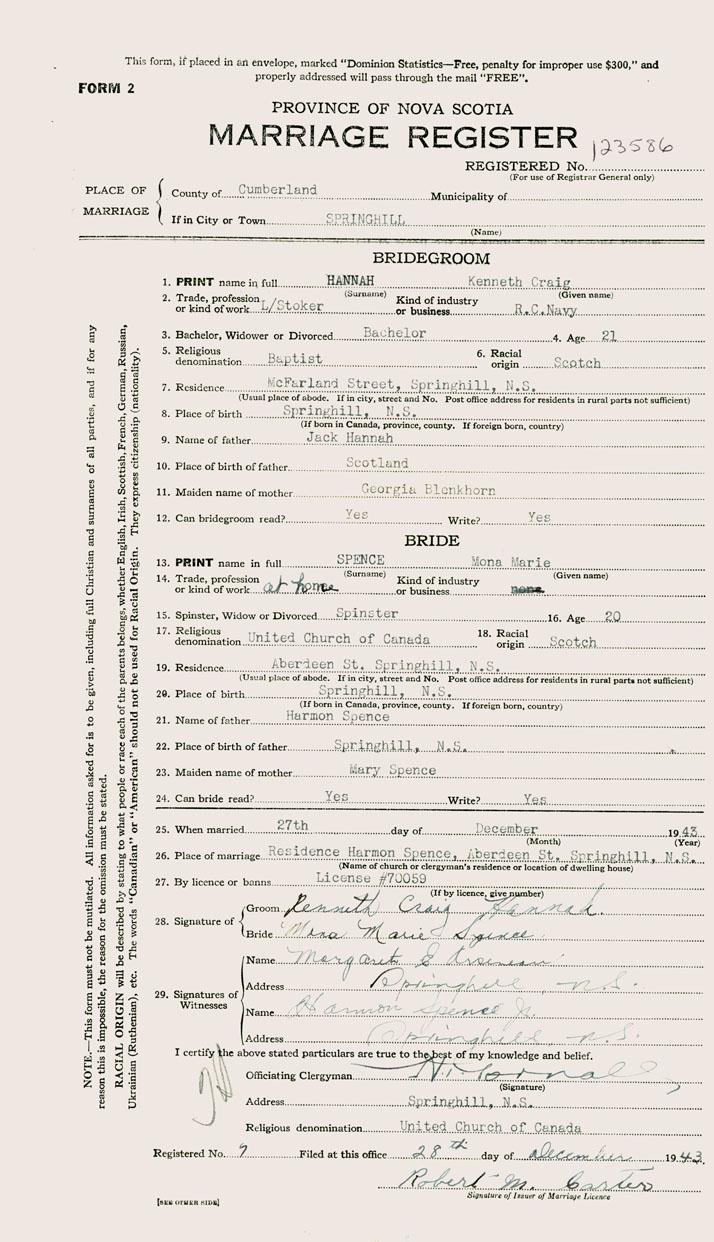 This form, if placed in an envelope, marked “Dominion Statistics—Free, penalty for improper use $300,” and
properly addressed will pass through the mail “FREE”.
FORM 2
PROVINCE OF NOVA SCOTIA
MARRIAGE REGISTER
123586
REGISTERED No.
(For use of Registrar General only)
PLACE OF MARRIAGE
County of Cumberland Municipality of
If in City or Town SPRINGHILL
(Name)
BRIDEGROOM
1. PRINT name in full HANNAH Kenneth Craig
(Surname) (Given name)
2. Trade, profession or kind of work L/Stoker Kind of industry or business R.C.Navy
3. Bachelor, Widower or Divorced Bachelor 4. Age 21
5. Religious denomination Baptist 6. Racial origin Scotch
7. Residence McFarland Street, Springhill, N.S.
(Usual place of abode. If in city, street and No. Post office address for residents in rural parts not sufficient)
8. Place of birth Springhill, N.S.
(If born in Canada, province, county. If foreign born, country)
9. Name of father Jack Hannah
10. Place of birth of father Scotland
11. Maiden name of mother Georgia Blenkhorn
12. Can bridegroom read? Yes Write? Yes
BRIDE
13. PRINT name in full SPENCE Mona Marie
(Surname) (Given name)
14. Trade, profession or kind of work at home Kind of industry or business none
15. Spinster, Widow or Divorced Spinster 16. Age 20
17. Religious denomination United Church of Canada 18. Racial origin Scotch
19. Residence Aberdeen St. Springhill, N.S.
(Usual place of abode. If in city, street and No. Post office address for residents in rural parts not sufficient)
20. Place of birth Springhill, N.S.
(If born in Canada, province, county. If foreign born, country)
21. Name of father Harmon Spence
22. Place of birth of father Springhill, N.S.
23. Maiden name of mother Mary Spence
24. Can bride read? Yes Write? Yes
25. When married 27th day of December 1943
(Month) (Year)
26. Place of marriage Residence Harmon Spence, Aberdeen St. Springhill, N.S.
(Name of church or clergyman's residence or location of dwelling house)
27. By licence or banns License #70059
(If by licence, give number)
28. Signature of
Groom Kenneth Craig Hannah.
Bride Mona Marie Spence.
29. Signatures of Witnesses
Name Margaret E
Address Springhill, N.S.
Name Harmon Spence Jr.
Address Springhill, N.S.
I certify the above stated particulars are true to the best of my knowledge and belief.
Officiating Clergyman
(Signature)
Address Springhill, N.S.
Religious denomination United Church of Canada
Registered No. 9 Filed at this office 28th day of December 1943.
Robert M. Carter
Signature of Issuer of Marriage Licence
[SEE OTHER SIDE]
NOTE.—This form must not be mutilated. All information asked for is to be given, including full Christian and surnames of all parties, and if for any
reason this is impossible, the reason for the omission must be stated.
RACIAL ORIGIN will be described by stating to what people or race each of the parents belongs, whether English, Irish, Scottish, French, German, Russian,
Ukrainian (Ruthenian), etc. The words “Canadian” or “American” should not be used for Racial Origin. They express citizenship (nationality).